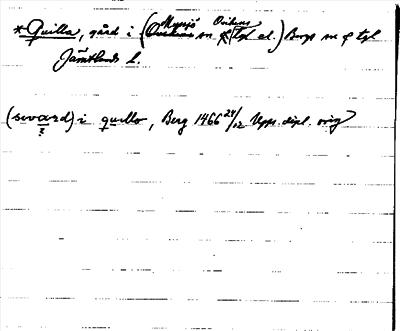 *Quilla, gård i (Myssjö Ovikens sn & tgl el.) Bergs sn & tgl
Jämtlands l.
(swærd) i quillo, Berg 1466 24/12 Upps. dipl. orig
?